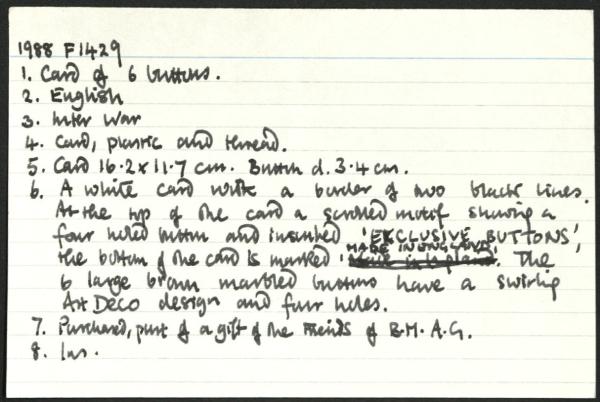 1988 F1429
1. Card of 6 buttons.
2. English
3. Inter War
4. Card, plastic and thread.
5. Card 16.2 x 11.7 cm. Button d. 3.4 cm.
6. A white card with a border of two black lines.
At the top of the card a scrolled motif showing a
four holed button and inscribed 'EXCLUSIVE BUTTONS',
MADE IN ENGLAND'
the bottom of the card is marked '. The
6 large brown marbled buttons have a swirling
Art Deco design and four holes.
7. Purchased, part of a gift of the Friends of B.M.A.G.
8. Ins.